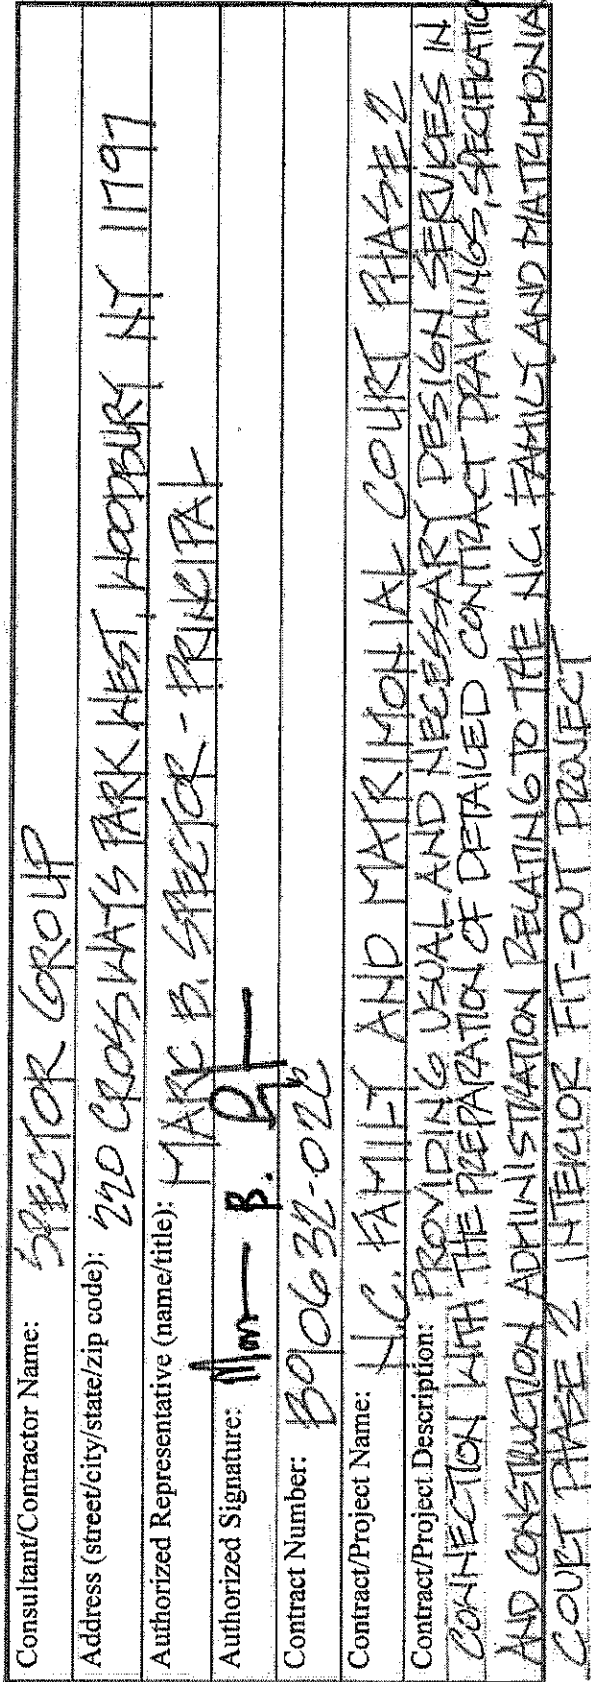 Consultant/Contractor Name: SPECTOR GROUP
Address (street/city/state/zip code): 220 CROSSWAYS PARK WEST, WOODBURY NY 11797
Authorized Representative (name/title): MARC B. SPECTOR - PRINCIPAL
Authorized Signature:
Contract Number: B90632-02C
Contract/Project Name: N.C. FAMILY AND MATRIMONIAL COURT PHASE 2
Contract/Project Description: PROVIDING USUAL AND NECESSARY DESIGN SERVICES IN
CONNECTION WITH THE PREPARATION OF DETAILED CONTRACT DRAWINGS, SPECIFICATIO
AND CONSTRUCTION ADMINISTRATION RELATING TO THE N.C. FAMILY AND MATRIMONIA
COURT PHASE 2 INTERIOR FIT-OUT PROJECT